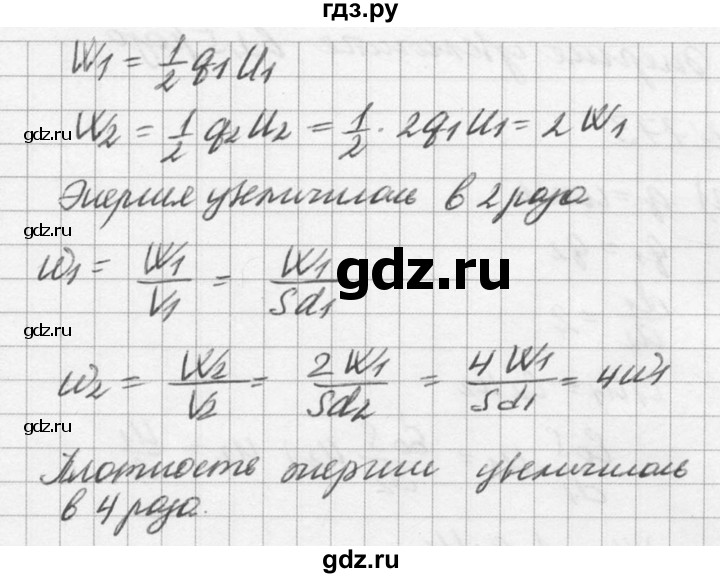 гдз.ру
W₁ = 1/2 q₁U₁
gdz.ru gdz.ru
W₂ = 1/2 q₂U₂ = 1/2 · 2q₁U₁ = 2W₁
Энергия увеличилась в 2 раза
gdz.ru gdz.ru
w₁ = W₁/V₁ = W₁/Sd₁
gdz.ru
gdz.ru gdz.ru
w₂ = W₂/V₂ = 2W₁/Sd₂ = 4W₁/Sd₁ = 4w₁
gdz.ru gdz.ru
Плотность энергии увеличилась
в 4 раза.
gdz.ru gdz.ru
gdz.ru